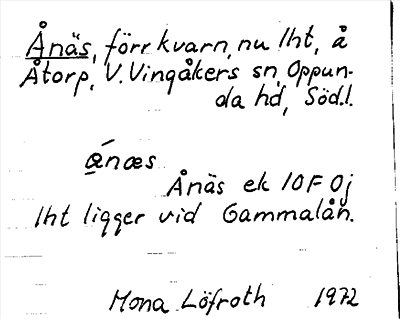 Ånäs, förr kvarn, nu lht, å
Åtorp, V. Vingåkers sn, Oppun-
da hd, Södl.
ánæs
Ånäs ek 10F 0j
lht ligger vid Gammalån.
Mona Löfroth 1972